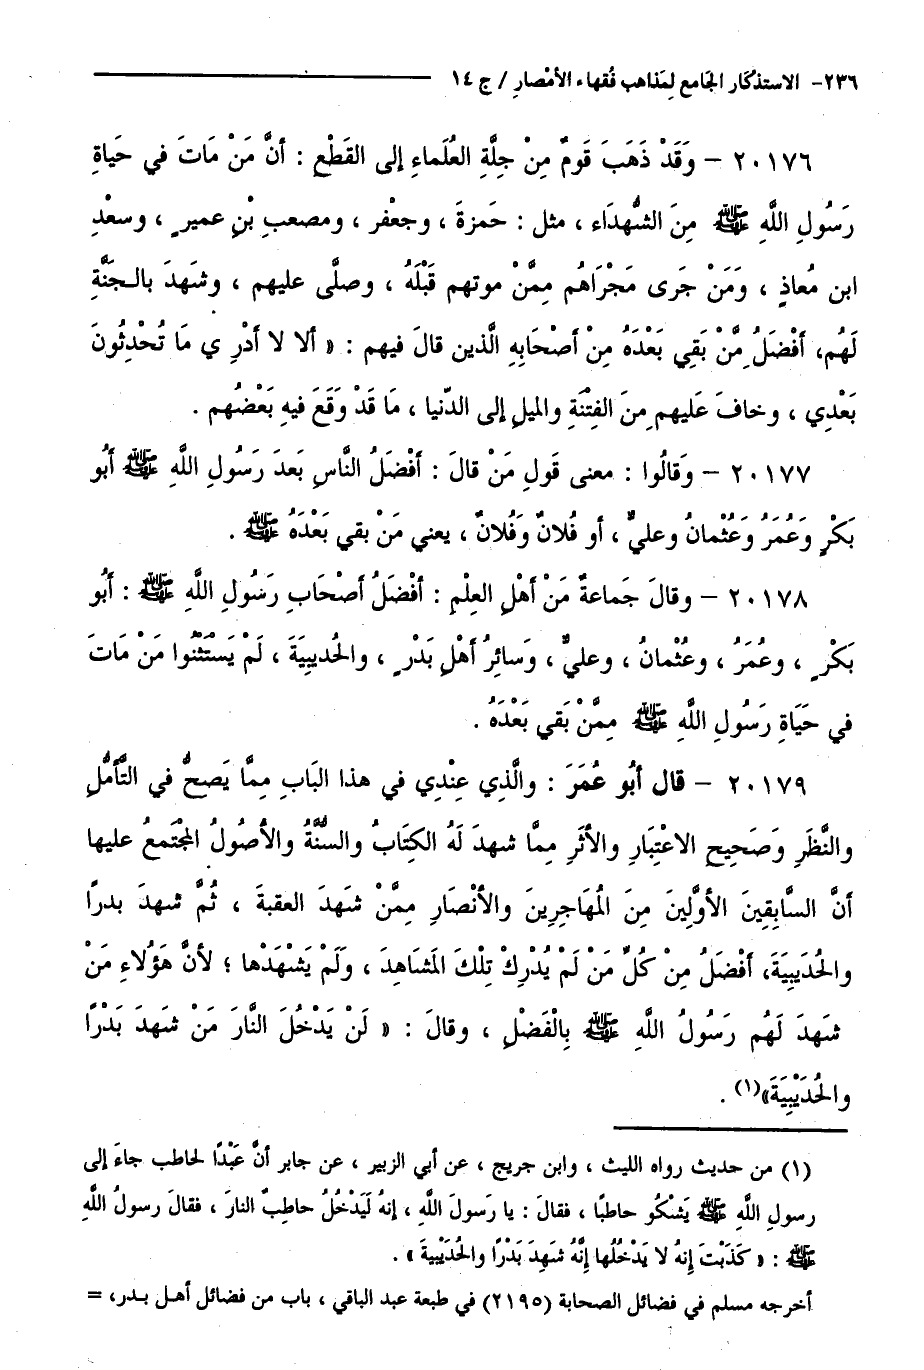 ٢٣٦- الاستذكار الجامع لِمَذاهب فُقهاء الأمْصارِ / ج ١٤
٢٠١٧٦ – وَقَدْ ذَهَبَ قَومٌ مِنْ جِلَّةِ العُلَماءِ إلى القَطْعِ : أنَّ مَنْ مَاتَ في حَياةِ
رَسُولِ اللَّهِ ﷺ مِنَ الشُّهدَاء ، مثل : حَمزةَ ، وجعْفر ، ومصعبِ بْنِ عميرٍ ، وسعْدِ
ابن مُعاذٍ ، وَمَنْ جَرى مَجْرَاهُم مِمَّنْ موتهم قَبْلَهُ ، وصلَّى عليهم ، وشَهدَ بالـجنَّةِ
لَهُم، أفْضَلُ مِمَّنْ بَقِي بَعْدَهُ مِنْ أصْحَابِهِ الَّذين قالَ فيهم : « ألا لا أدْرِ ي مَا تُحْدِثُونَ
بَعْدِي ، وخافَ عَليهم مِنَ الفِتْنَةِ والميلِ إلى الدّنيا ، مَا قَدْ وَقَعَ فيهِ بَعْضُهم .
٢٠١٧٧ – وَقالُوا : معنى قَولِ مَنْ قالَ : أفْضَلُ النَّاسِ بَعدَ رَسُولِ اللَّهِ ﷺ أبُو
بَكْرٍ وَعُمَرُ وَعُثْمانُ وعليٌّ ، أو فُلانٌ وَفُلانٌ ، يعني مَنْ بقي بَعْدَهُ ﷺ .
٢٠١٧٨ – وقالَ جَماعةٌ مَنْ أهْلِ العِلْمِ : أفْضَلُ أصْحَابِ رَسُولِ اللَّهِ ﷺ : أبُو
بَكْرٍ ، وعُمَرُ ، وعُثْمانُ ، وعليٌّ ، وَسائِرُ أهْلِ بَدْرٍ ، والحُديبِيَةَ ، لَمْ يَسْتَثْنُوا مَنْ مَاتَ
في حَيَاةِ رَسُولِ اللَّهِ ﷺ مِمَّنْ بَقي بَعْدَهُ .
٢٠١٧٩ – قال أبُو عُمَرَ : والَّذِي عِنْدِي في هذا البَابِ مِمَّا يَصحُّ في التَّأمُّلِ
والنَّظَرِ وَصَحِيحِ الاعْتِبَارِ والأثَرِ مِمَّا شهدَ لَهُ الكِتَابُ والسُّنَّةُ والأصُولُ المجْتَمعُ عليها
أنَّ السَّابِقِينَ الأوَّلِينَ مِنَ المُهَاجِرِينَ والأنْصَارِ مِمَّنْ شَهدَ العقبةَ ، ثُمَّ شهدَ بدرًا
والحُدَيبِيَةَ، أفْضَلُ مِنْ كُلِّ مَنْ لَمْ يُدْرِكْ تِلْكَ المَشَاهدَ ، ولَمْ يَشْهَدْها ؛ لأنَّ هَؤُلاءِ مَنْ
شهدَ لَهُم رَسُولُ اللَّهِ ﷺ بِالْفَضْلِ ، وقالَ : « لَنْ يَدْخُلَ النَّارَ مَنْ شَهدَ بَدْرًا
والحُدَيْبِيَةَ»(١) .
(١) من حديث رواه الليث ، وابن جريج ، عن أبي الزبير ، عن جابر أنَّ عَبْدًا لحاطب جاءَ إلى
رسولِ اللَّهِ ﷺ يَشْكُو حاطبًا ، فقالَ : يا رَسولَ اللَّهِ ، إنهُ لَيَدْخُلُ حاطِبٌ النارَ ، فقالَ رسولُ اللَّهِ
ﷺ : « كَذَبْتَ إِنهُ لا يَدْخُلُها إِنَّهُ شهِدَ بَدْرًا والحُدَيْبيةَ » .
أخرجه مسلم في فضائل الصحابة (٢١٩٥) في طبعة عبد الباقي ، باب من فضائل أهـل بـدر، =